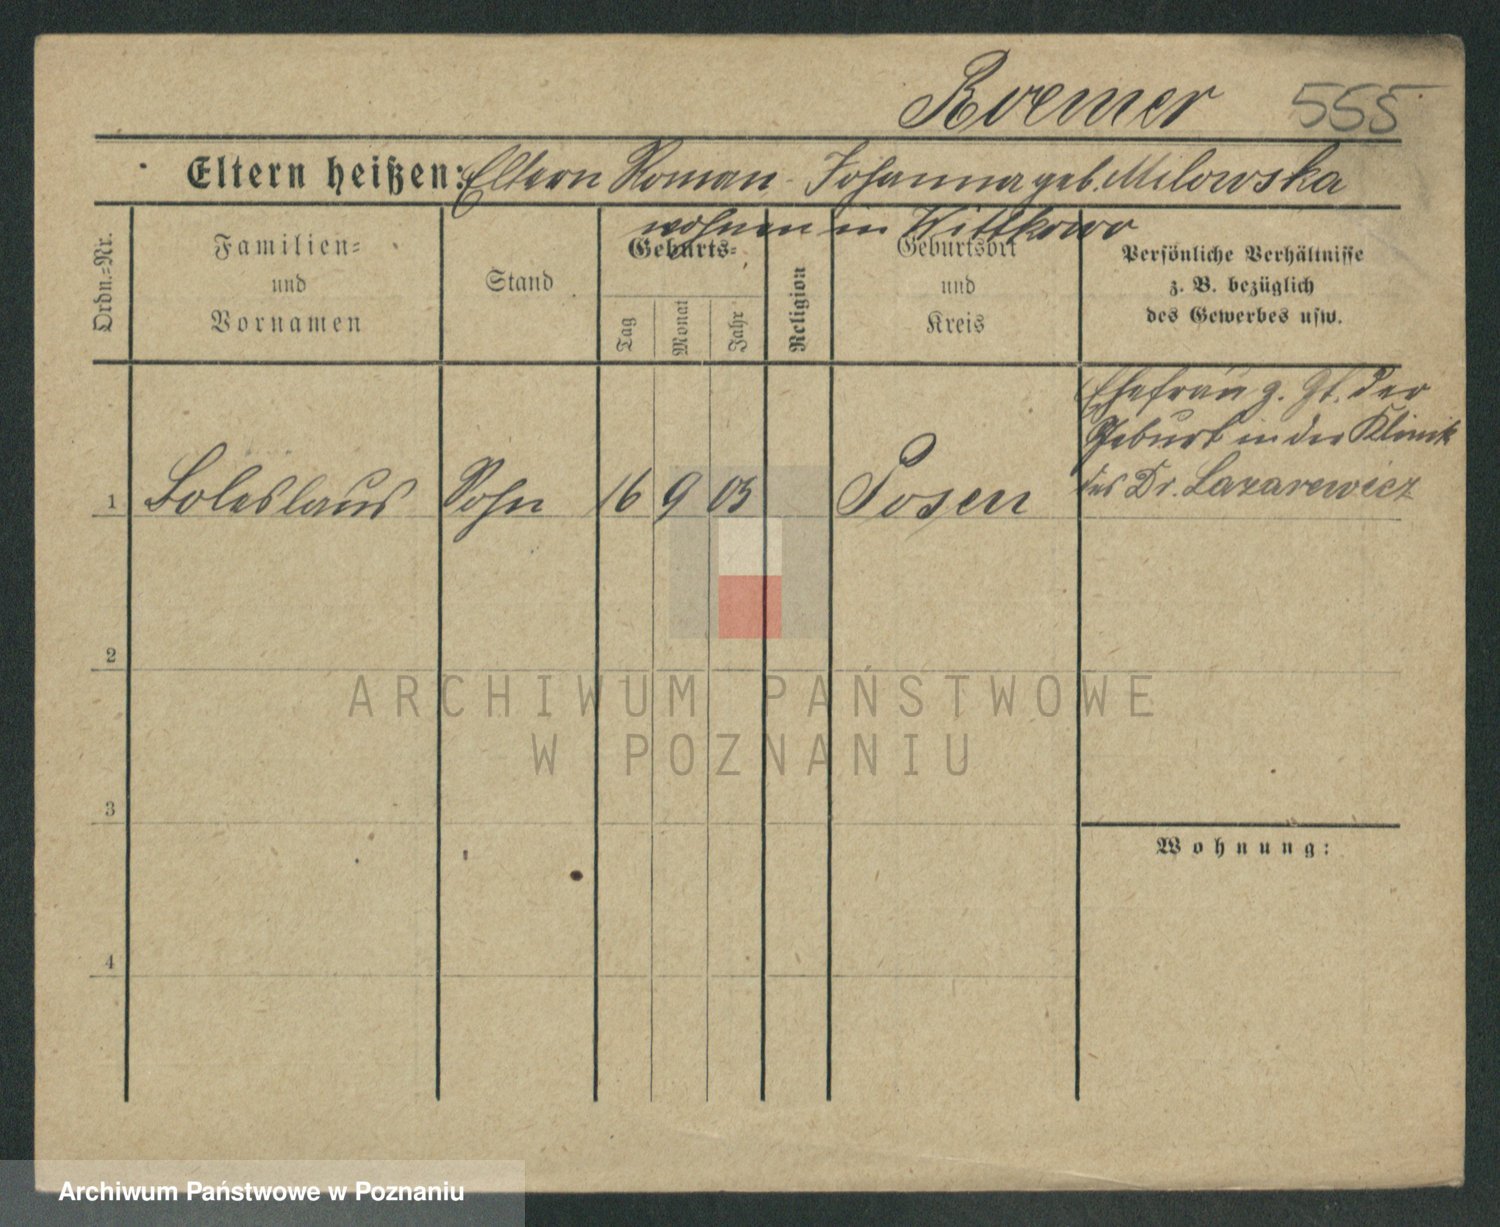 Roemer 555
Eltern heißen: Eltern Roman - Johanna geb. Milowska
wohnen in Wittkowo
Ordn.=Nr.
Familien=
und
Vornamen
Stand
Geburts=
Tag
Monat
Jahr
Religion
Geburtsort
und
Kreis
Persönliche Verhältnisse
z. B. bezüglich
des Gewerbes usw.
1 Boleslaus Sohn 16 9 03 Posen
Ehefrau z. Zt. der
Geburt in der Klinik
des Dr. Lazarewicz
2
3
4
Wohnung:
ARCHIWUM PAŃSTWOWE
W POZNANIU
Archiwum Państwowe w Poznaniu